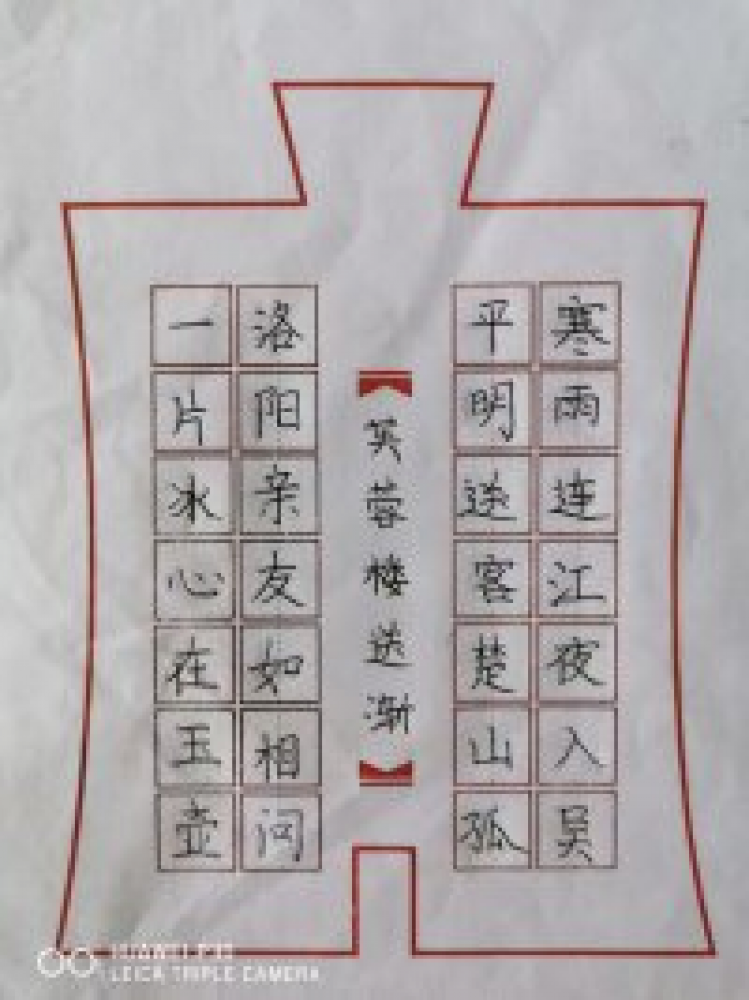 寒雨连江夜入吴
平明送客楚山孤
【芙蓉楼送渐】
洛阳亲友如相问
一片冰心在玉壶
HUAWEI P30
LEICA TRIPLE CAMERA